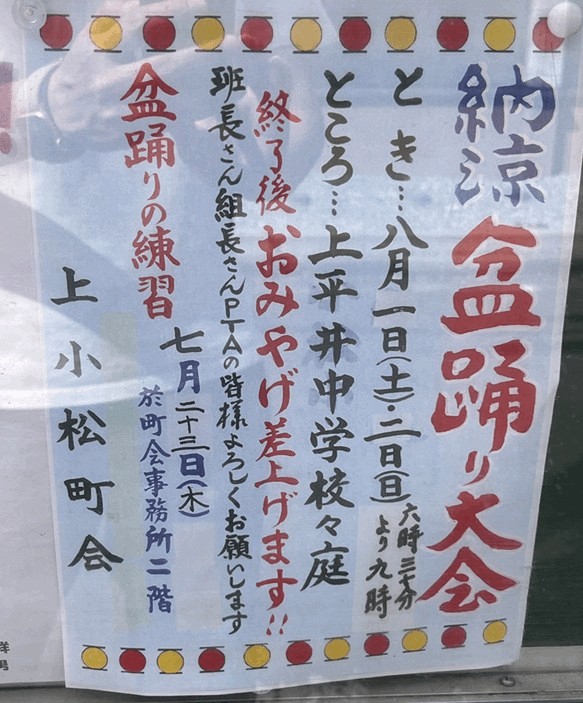 納涼 盆踊り大会
とき…八月一日(土)・二日(日)六時三十分より九時
ところ…上平井中学校々庭
終了後おみやげ差上げます!!
班長さん組長さんPTAの皆様よろしくお願いします
盆踊りの練習 七月二十三日(木)
於町会事務所二階
上小松町会